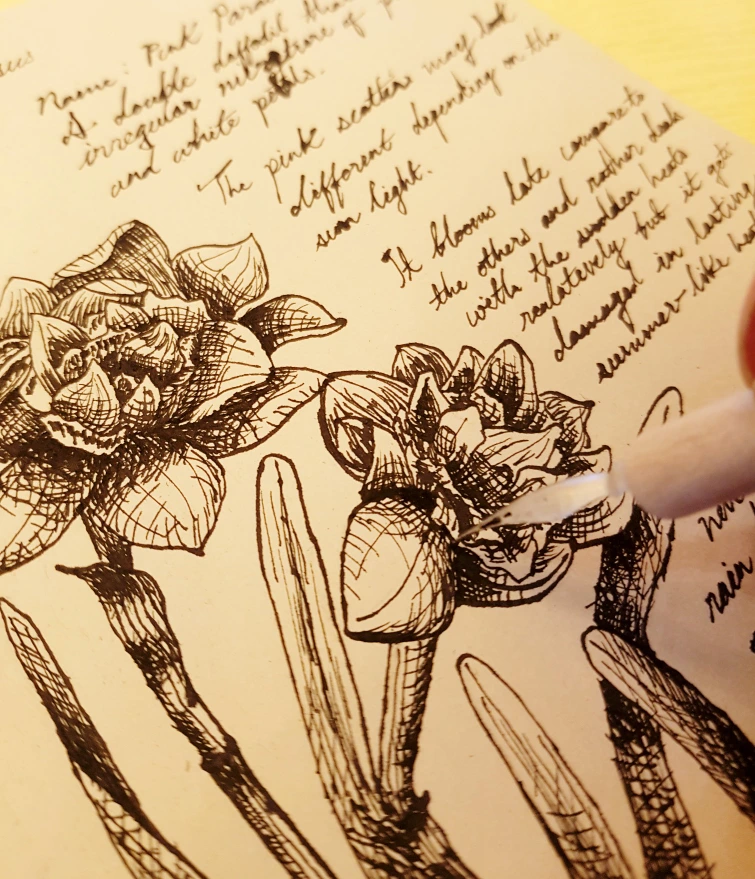 Name: Pink Para
A double daffodil tha
irregular mixture of p
and white petals.
The pink scatter may look
different depending on the
sun light.
It blooms late compare to
the others and rather deals
with the sudden heats
relatively but it get
damaged in lasting
summer-like hea
rain